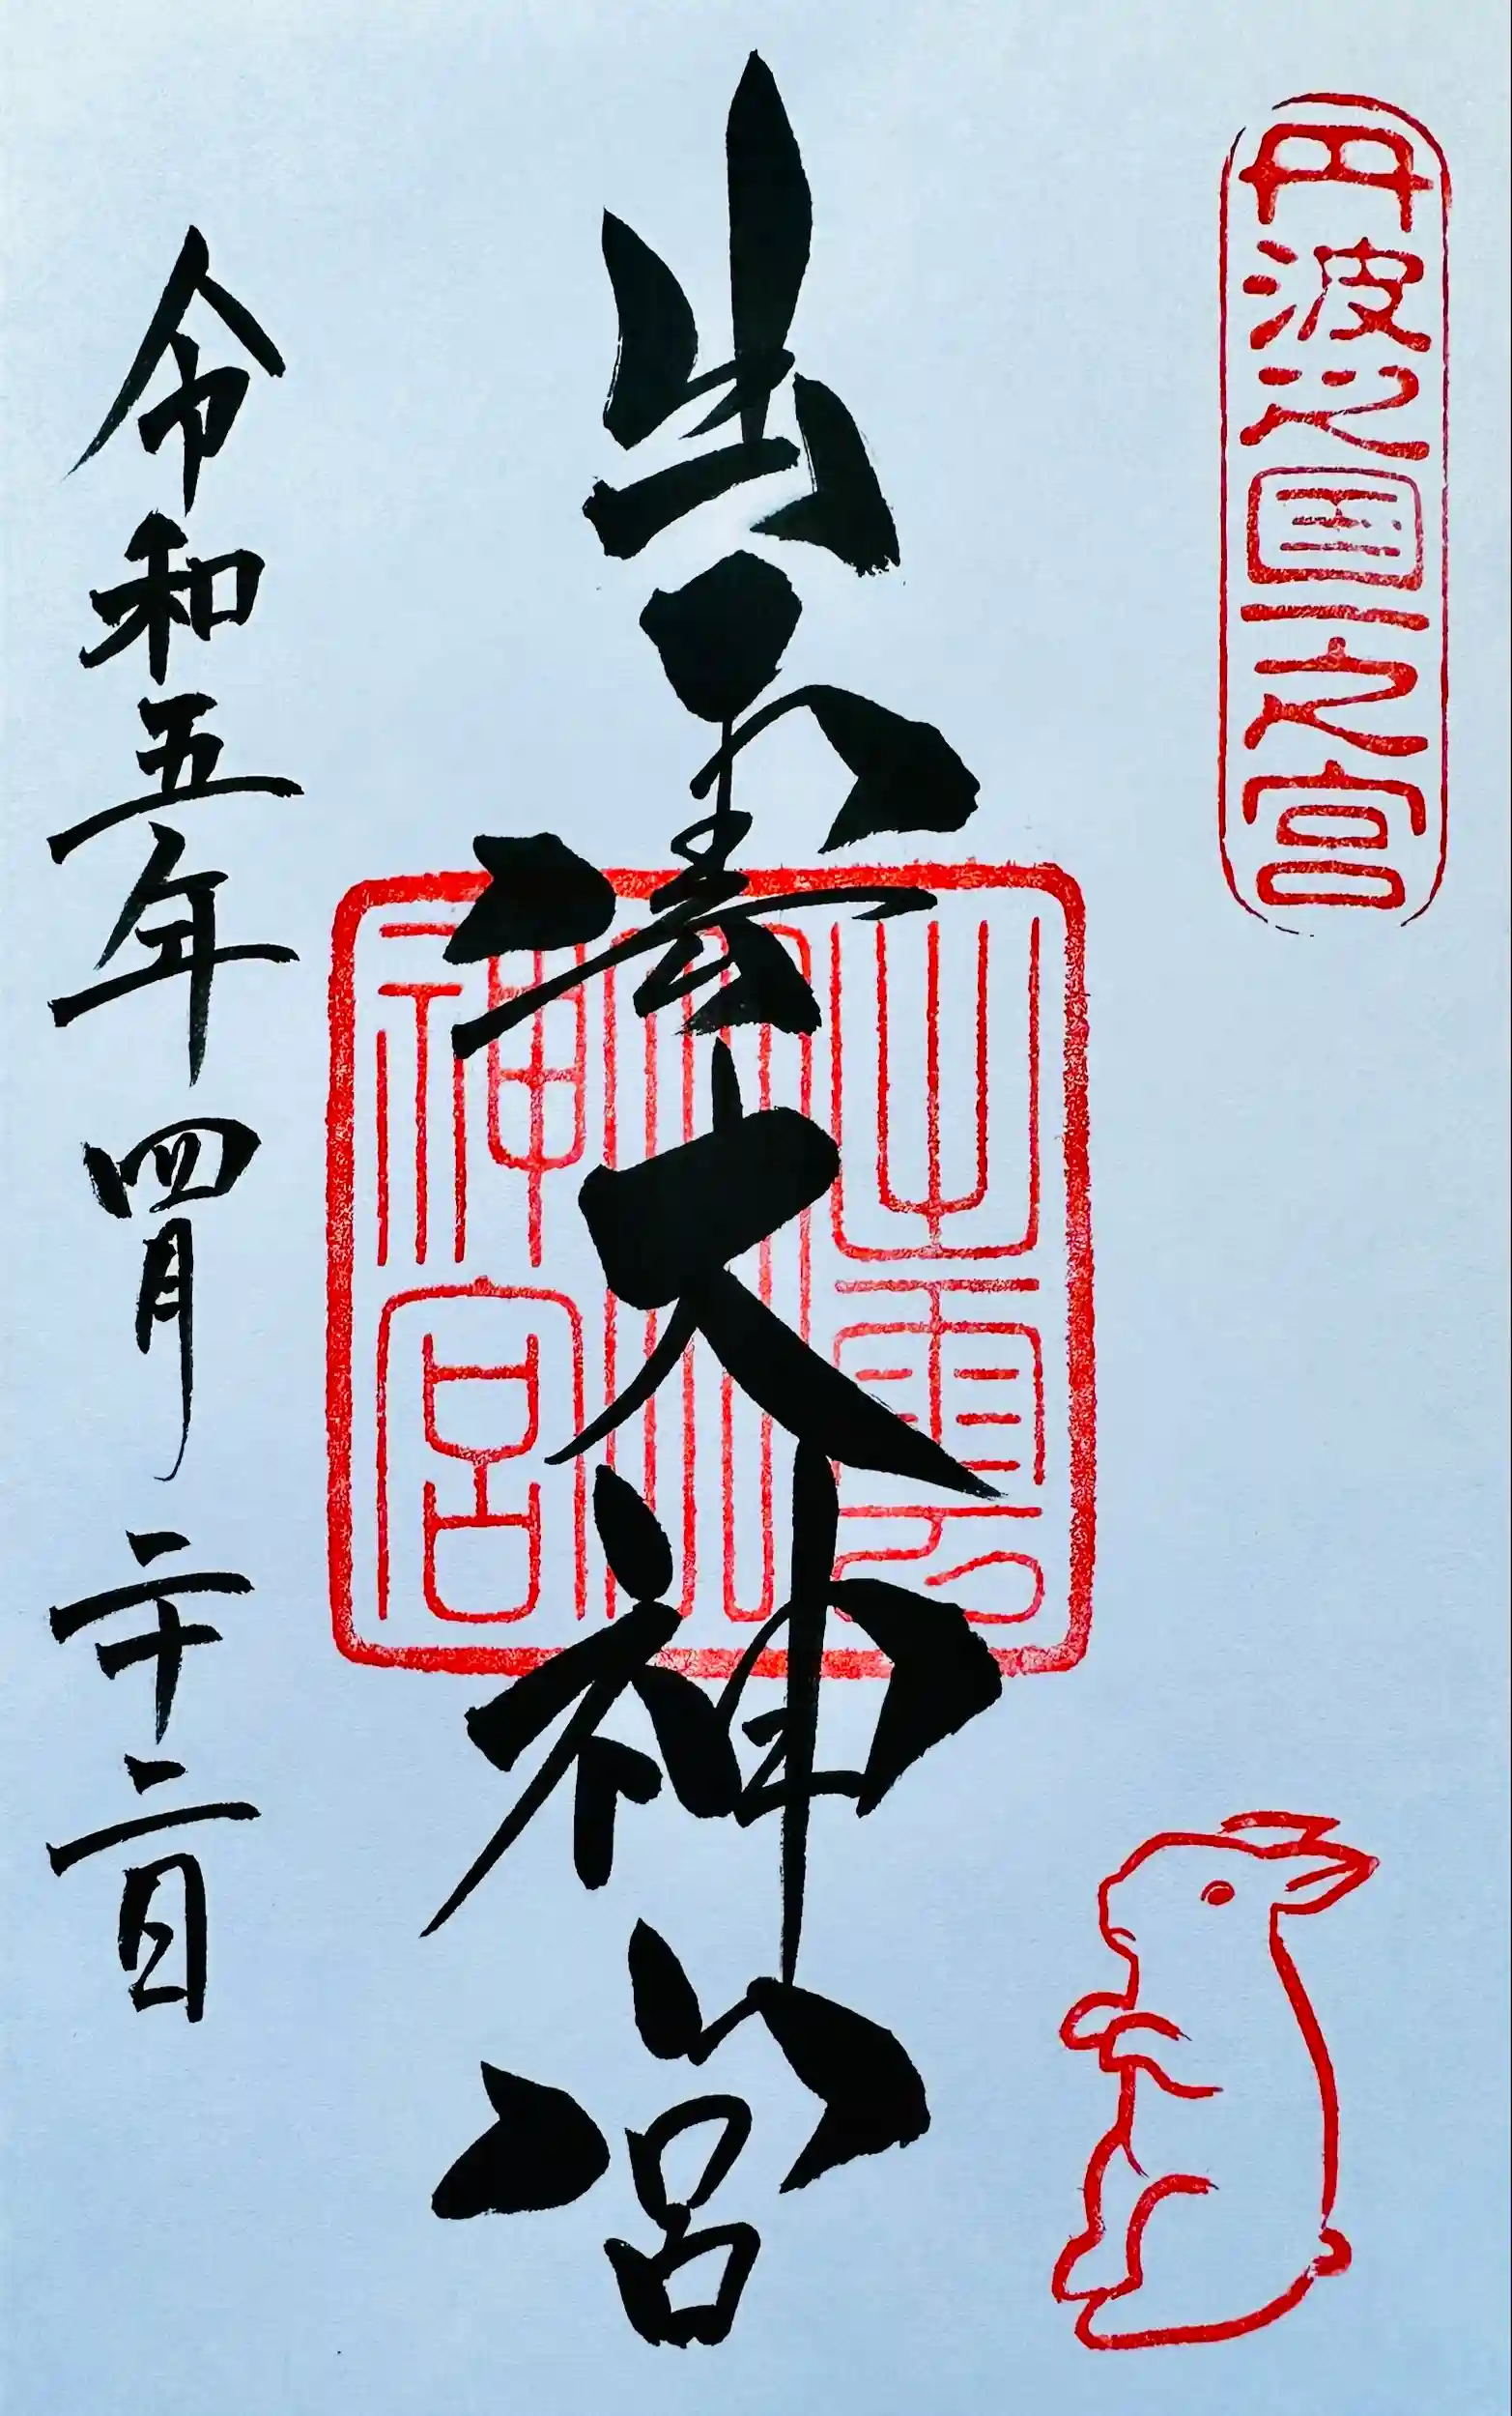 丹波之國一之宮
出雲大神宮
出雲大神宮
令和五年四月二十二日